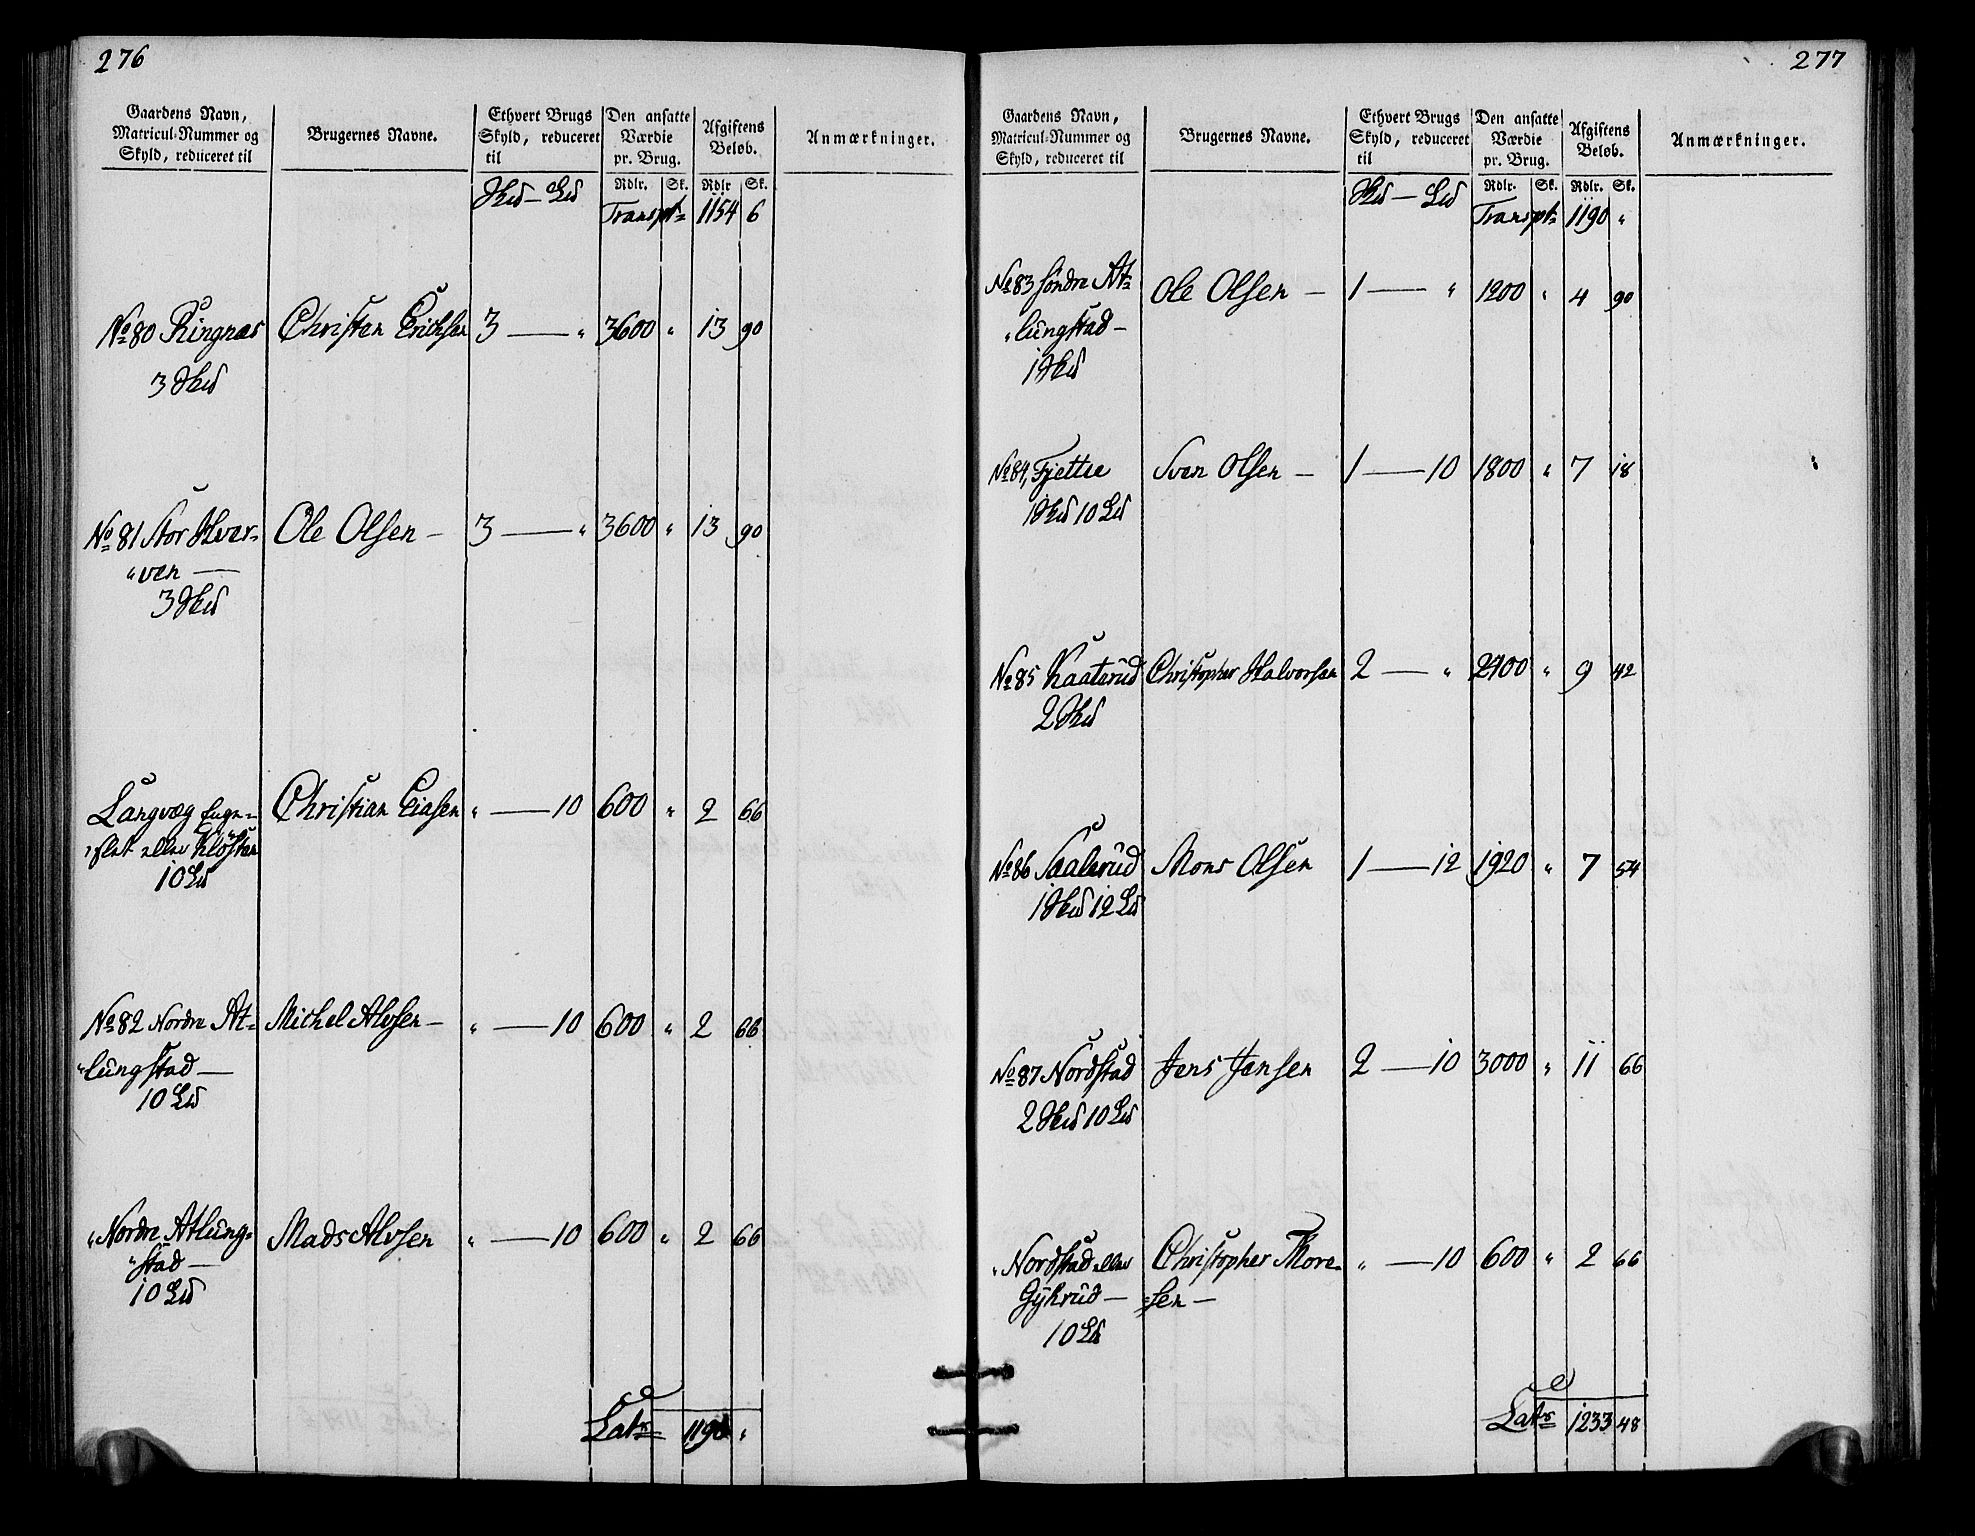 276
Gaardens Navn, Matricul-Nummer og Skyld, reduceret til | Brugernes Navne. | Ethvert Brugs Skyld, reduceret til | Den ansatte Værdie pr. Brug. | Afgiftens Beløb. | Anmærkninger.
Skd — Ld | Rdlr. | Sk. | Rdlr | Sk.
Transpt= 1154 6
No 80 Ringnæs Christian Erichsen 3 — " 3600 " 13 90
3 Skd
No 81 Stor Hver= Ole Olsen — 3 — " 3600 " 13 90
"ven —
3 Skd
Langvæg Enge= Christian Eiasen " — 10 600 " 2 66
"slet eller Kløften
10 Ld
No 82 Nordre At= Michel Alvsen — " — 10 600 " 2 66
"lungstad —
10 Ld
"Nordre Atlung= Mads Alvsen " — 10 600 " 2 66
"stad —
10 Ld
Lats 1190 "
277
Gaardens Navn, Matricul-Nummer og Skyld, reduceret til | Brugernes Navne. | Ethvert Brugs Skyld, reduceret til | Den ansatte Værdie pr. Brug. | Afgiftens Beløb. | Anmærkninger.
Skd — Ld | Rdlr. | Sk. | Rdlr. | Sk.
Transpt= 1190 "
No 83 søndre At= Ole Olsen — 1 — " 1200 " 4 90
"lungstad —
1 Skd
No 84, Fjettee Sven Olsen — 1 — 10 1800 " 7 18
1 Skd 10 Ld
No 85 Kaaterud Christopher Halvorsen 2 — " 2400 " 9 42
2 Skd
No 86 Saalerud Mons Olsen 1 — 12 1920 " 7 54
1 Skd 12 Ld
No 87 Nordstad Jens Jensen 2 — 10 3000 " 11 66
2 Skd 10 Ld
"Nordstad eller Christopher Thore= " — 10 600 " 2 66
Gÿkrud — =sen —
10 Ld
Lats 1233 48